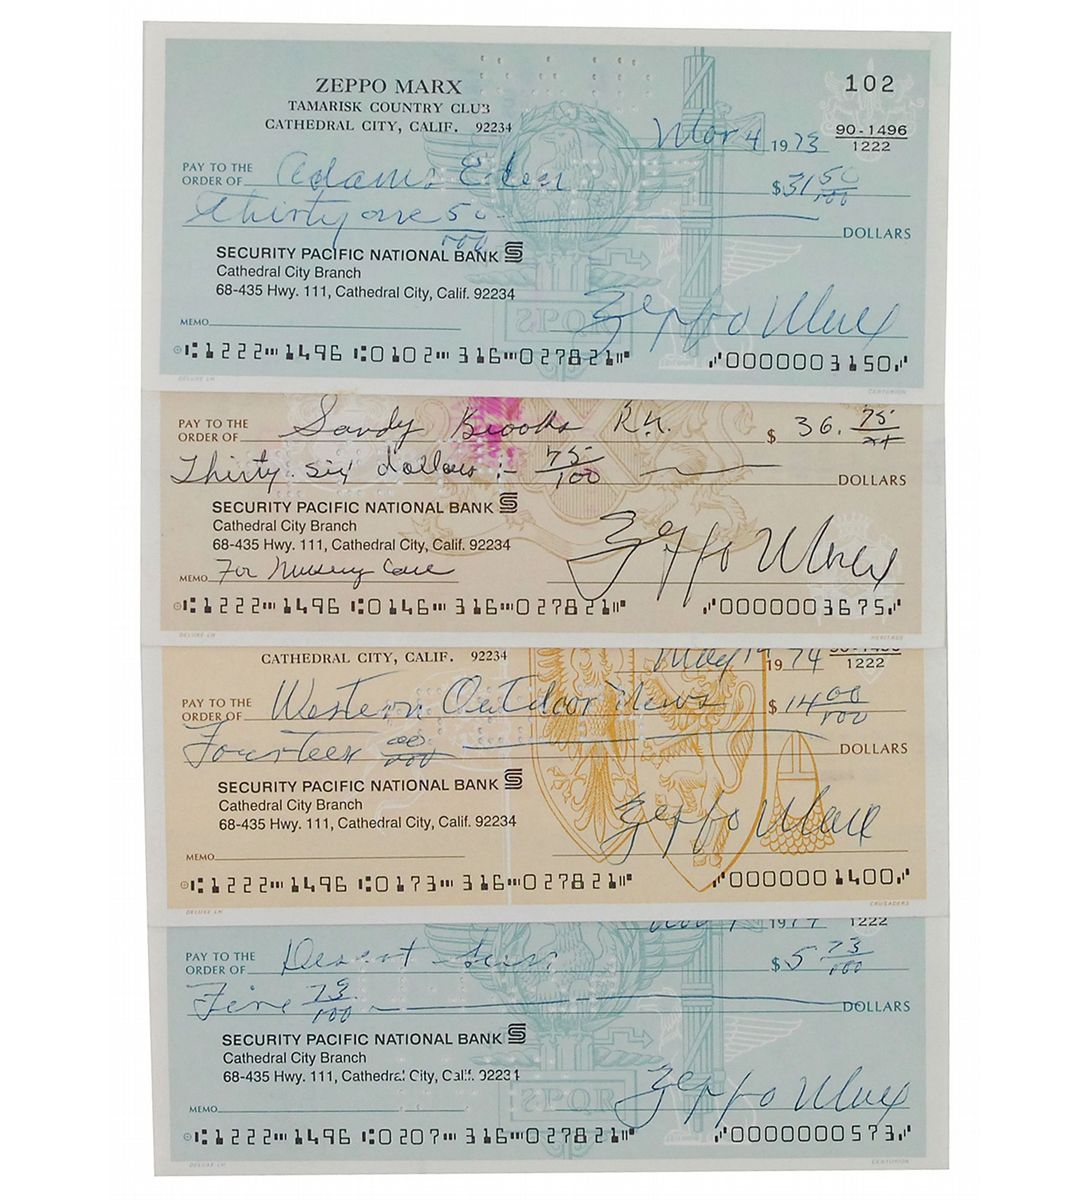 ZEPPO MARX
TAMARISK COUNTRY CLUB
CATHEDRAL CITY, CALIF. 92234
102
Mar 4 1973
90-1496
1222
PAY TO THE
ORDER OF Adams Eden $31 50/100
Thirty one 50/100 DOLLARS
SECURITY PACIFIC NATIONAL BANK
Cathedral City Branch
68-435 Hwy. 111, Cathedral City, Calif. 92234
SPQR
Zeppo Marx
MEMO
⑆1222⑉1496⑆0102⑉316⑉027821⑈ ⑇0000003150⑇
DELUXE LH CENTURION
PAY TO THE
ORDER OF Sandy Brooks R.N. $ 36. 75/xx
Thirty six dollars 75/100 DOLLARS
SECURITY PACIFIC NATIONAL BANK
Cathedral City Branch
68-435 Hwy. 111, Cathedral City, Calif. 92234
Zeppo Marx
MEMO For Nursing Care
⑆1222⑉1496⑆0146⑉316⑉027821⑈ ⑇0000003675⑇
DELUXE LH HERITAGE
CATHEDRAL CITY, CALIF. 92234
May 19 1974
1222
PAY TO THE
ORDER OF Western Outdoor News $14 00/100
Fourteen 00/100 DOLLARS
SECURITY PACIFIC NATIONAL BANK
Cathedral City Branch
68-435 Hwy. 111, Cathedral City, Calif. 92234
Zeppo Marx
MEMO
⑆1222⑉1496⑆0173⑉316⑉027821⑈ ⑇0000001400⑇
DELUXE LH CRUSADERS
1974
1222
PAY TO THE
ORDER OF Desert Sun $5 73/100
Five 73/100 DOLLARS
SECURITY PACIFIC NATIONAL BANK
Cathedral City Branch
68-435 Hwy. 111, Cathedral City, Calif. 92234
SPQR
Zeppo Marx
MEMO
⑆1222⑉1496⑆0207⑉316⑉027821⑈ ⑇0000000573⑇
DELUXE LH CENTURION